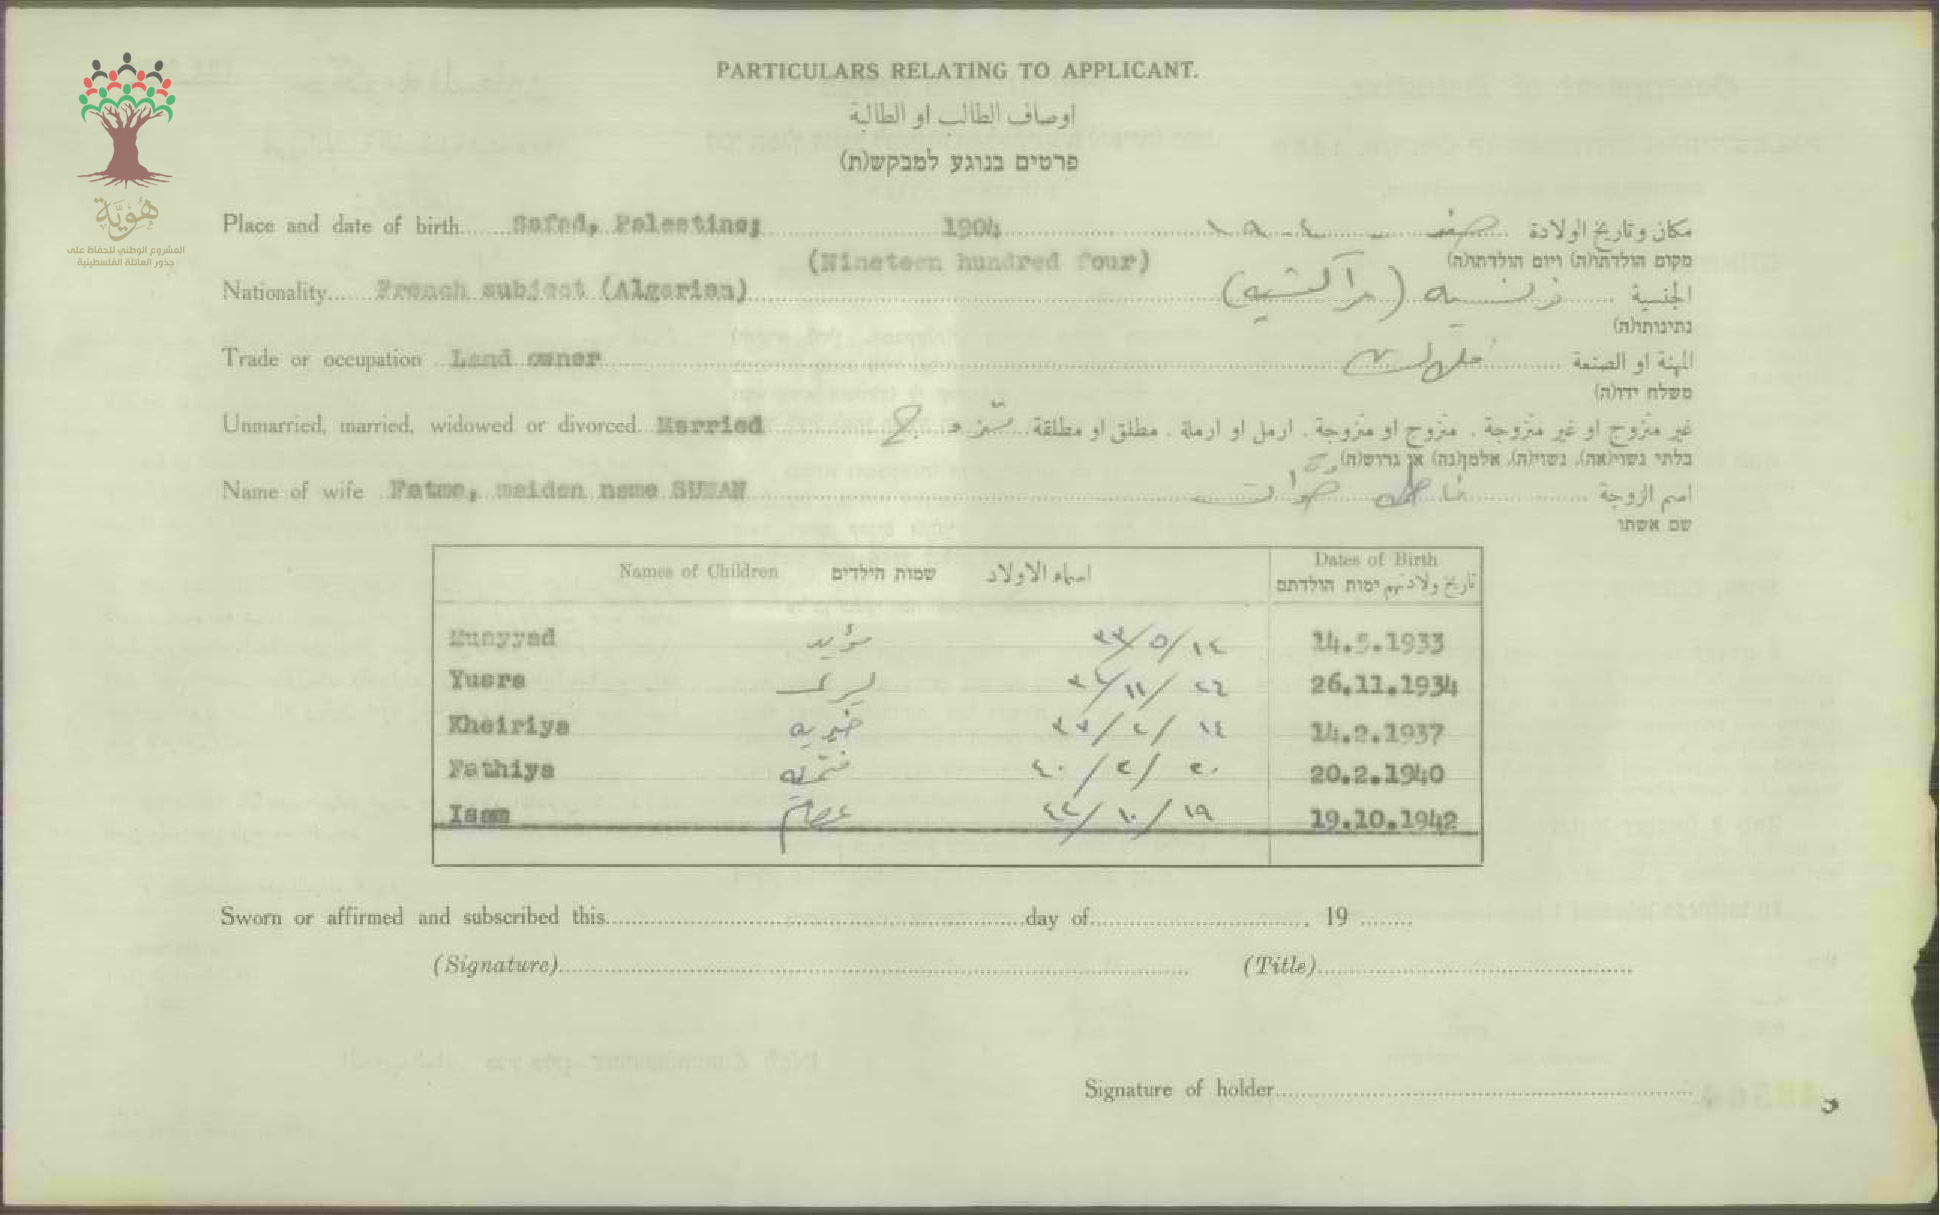 PARTICULARS RELATING TO APPLICANT.
اوصاف الطالب او الطالبة
פרטים בנוגע למבקש(ת)
هُوِيَّة
المشروع الوطني للحفاظ على
جذور العائلة الفلسطينية
Place and date of birth Safad, Palestine; 1904 صفد - ١٩٠٤ مكان وتاريخ الولادة
(Nineteen hundred four) מקום הולדתו(ה) ויום הולדתו(ה)
Nationality French subject (Algerian) الجنسية
נתינותו(ה)
Trade or occupation Land owner المهنة او الصنعة
משלח ידו(ה)
Unmarried, married, widowed or divorced Married متزوج غير متزوج او غير متزوجة . متزوج او متزوجة . ارمل او ارملة . مطلق او مطلقة
בלתי נשוי(אה), נשוי(ה), אלמן(נה) או גרוש(ה)
Name of wife Fatme, maiden name SUWAN فاطمه صوان اسم الزوجة
שם אשתו
Names of Children שמות הילדים اسماء الاولاد Dates of Birth
تاريخ ولادتهم ימות הולדתם
Muayyad مؤيد ١٤/٥/٣٣ 14.5.1933
Yusra يسرى 26.11.1934
Kheiriya خيريه 14.2.1937
Fathiya فتحيه ٢٠/٢/٤٠ 20.2.1940
Isam عصام ١٩/١٠/٤٢ 19.10.1942
Sworn or affirmed and subscribed this day of , 19
(Signature) (Title)
Signature of holder